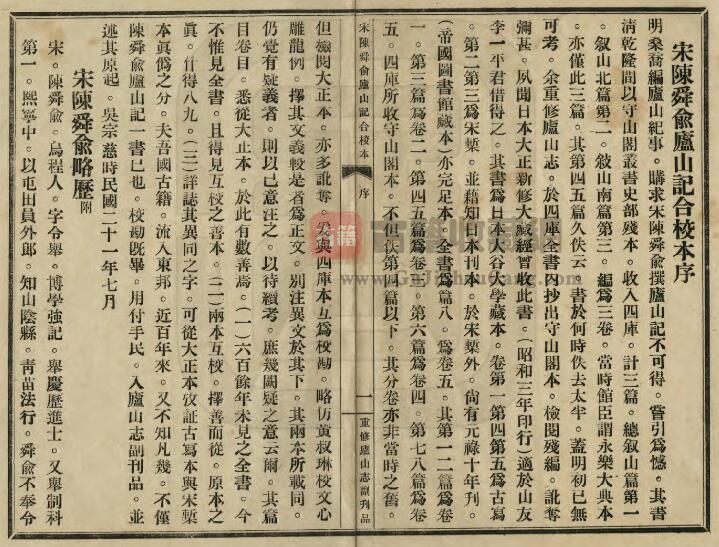 宋陳舜兪廬山記合校本序
明桑喬編廬山紀事。購求宋陳舜兪撰廬山記不可得。嘗引爲憾。其書
淸乾隆間以守山閣叢書史部殘本。收入四庫。計三篇。總叙山篇第一
。叙山北篇第二。敍山南篇第三。編爲三卷。當時館臣謂永樂大典本
。亦僅此三篇。其第四五篇久佚云。書於何時佚去太半。蓋明初已無
可考。余重修廬山志。於四庫全書內抄出守山閣本。檢閱殘編。訛奪
彌甚。夙聞日本大正新修大藏經曾收此書。(昭和三年印行)適於山友
李一平君借得之。其書爲日本大谷大學藏本。卷第一第四第五爲古寫
。第二第三爲宋槧。並藉知日本刊本。於宋槧外。尙有元祿十年刊。
(帝國圖書館藏本)亦完足本。全書爲篇八。爲卷五。其第一二篇爲卷
一。第三篇爲卷二。第四五篇爲卷三。第六篇爲卷四。第七八篇爲卷
五。四庫所收守山閣本。不但佚第四篇以下。其分卷亦非當時之舊。
宋陳舜兪廬山記合校本
序
一
重修廬山志副刊品
但檢閱大正本。亦多訛奪。爰與四庫本互爲校勘。略仿黃叔琳校文心
雕龍例。擇其文義較是者爲正文。別注異文於其下。其兩本所載同。
仍覺有疑義者。則以已意注之。以待續考。庶幾闕疑之意云爾。其篇
目卷目。悉從大正本。於此有數善焉。(一)六百餘年未見之全書。今
不惟見全書。且得見互校之善本。(二)兩本互校。擇善而從。原本之
眞。什得八九。(三)詳誌其異同之字。可從大正本攷証古寫本與宋槧
本眞僞之分。夫吾國古籍。流入東邦。近百年來。又不知凡幾。不僅
陳舜兪廬山記一書已也。校勘旣畢。用付手民。入廬山志副刊品。並
述其原起。吳宗慈時民國二十一年七月
宋陳舜兪略歷附
宋。陳舜兪。烏程人。字令舉。博學強記。舉慶歷進士。又舉制科
第一。熙寧中。以屯田員外郎。知山陰縣。靑苗法行。舜兪不奉令
古籍
www.GuJiShouCang.com